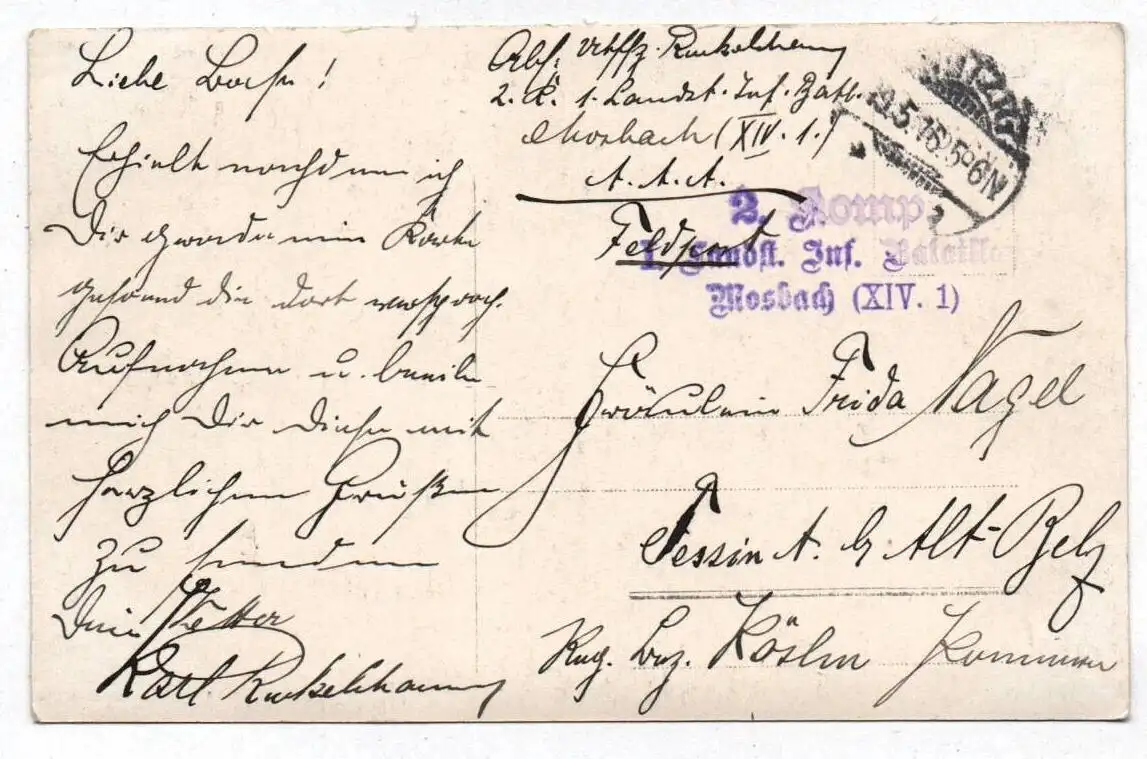 Liebe Base!
Erhielt nachdem ich
Dir gerade eine Karte
gesand die dort
Aufnahme u. beeile
mich Dir diese mit
herzlichen Grüßen
zu senden
Dein Vetter
Karl Ruckelshausen
Abs: Utffz. Ruckelshausen
2. K. 1. Landst. Inf. Batl.
Mosbach (XIV. 1.)
A. A. A.
Feldpost
2. Komp.
1. Landst. Inf. Bataillon
Mosbach (XIV. 1)
5.16. 5-6 N
Fräulein Frida Nagel
Tessin A. b/ Alt-Belz
Reg. Bez. Köslin Pommern